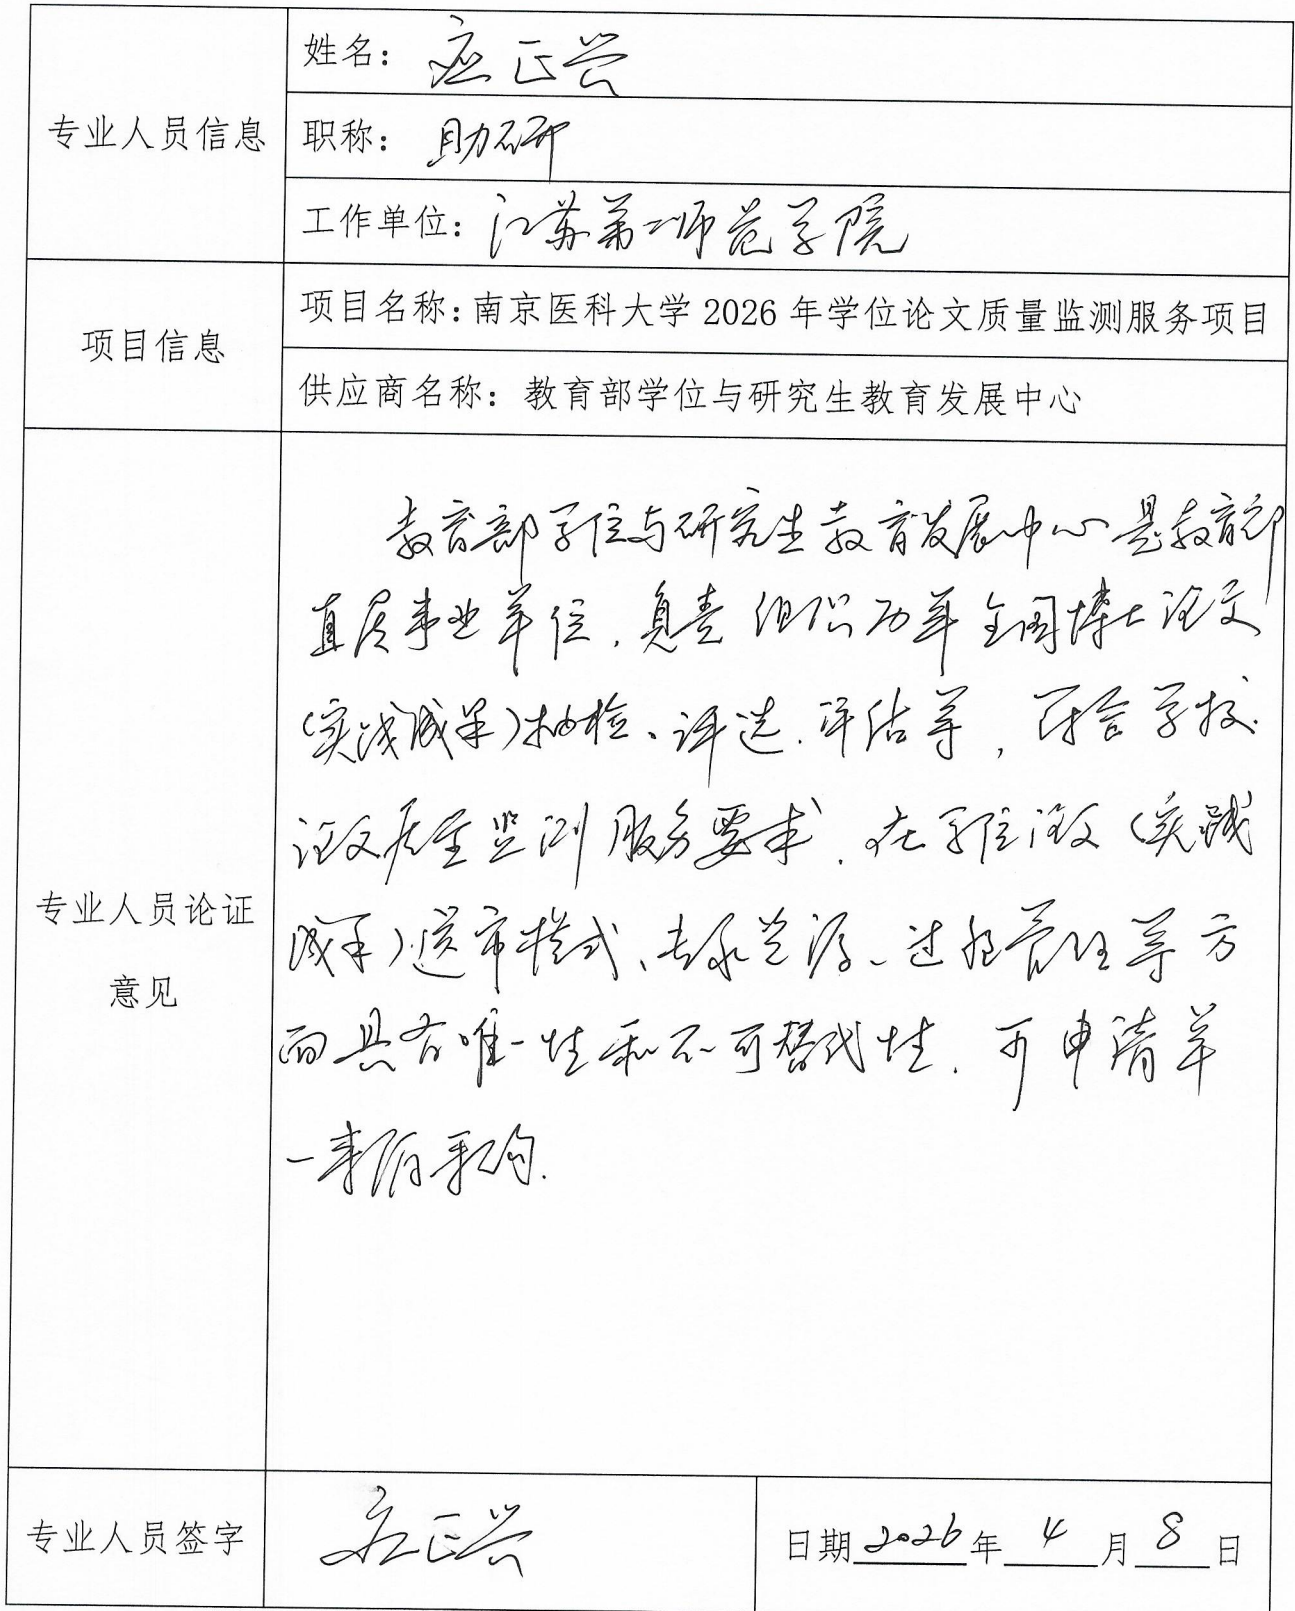 专业人员信息
姓名：应正兴
职称：助研
工作单位：江苏第二师范学院
项目信息
项目名称：南京医科大学 2026 年学位论文质量监测服务项目
供应商名称：教育部学位与研究生教育发展中心
专业人员论证
意见
教育部学位与研究生教育发展中心是教育部
直属事业单位，负责组织历年全国博士论文
（实践成果）抽检、评选、评估等，符合学校
论文质量监测服务要求，在学位论文（实践
成果）送审模式、专家资源、过程管理等方
面具有唯一性和不可替代性，可申请单
一来源采购.
专业人员签字
应正兴
日期2026年4月8日